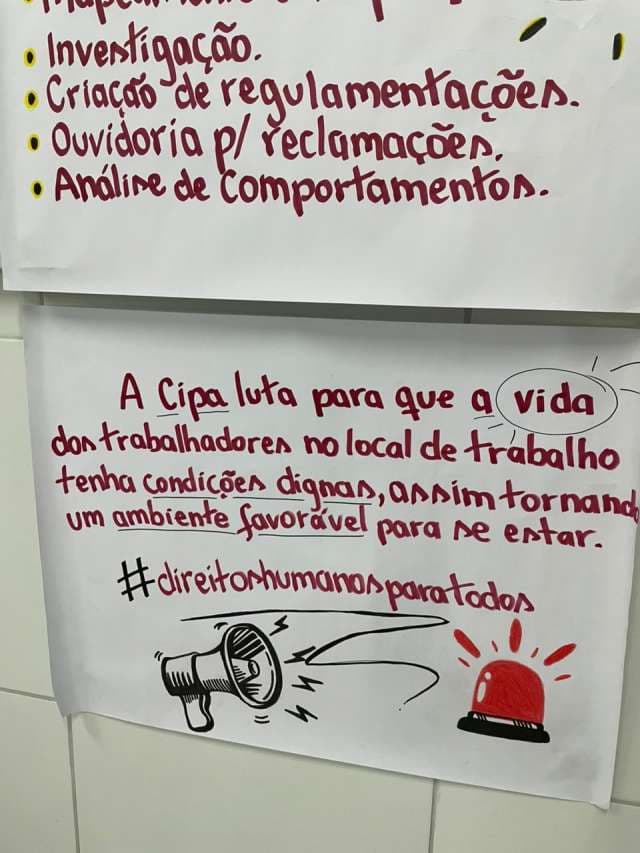 • Investigação.
• Criação de regulamentações.
• Ouvidoria p/ reclamações.
• Análise de Comportamentos.
A Cipa luta para que a vida
dos trabalhadores no local de trabalho
tenha condições dignas, assim tornando
um ambiente favorável para se estar.
#direitoshumanosparatodos